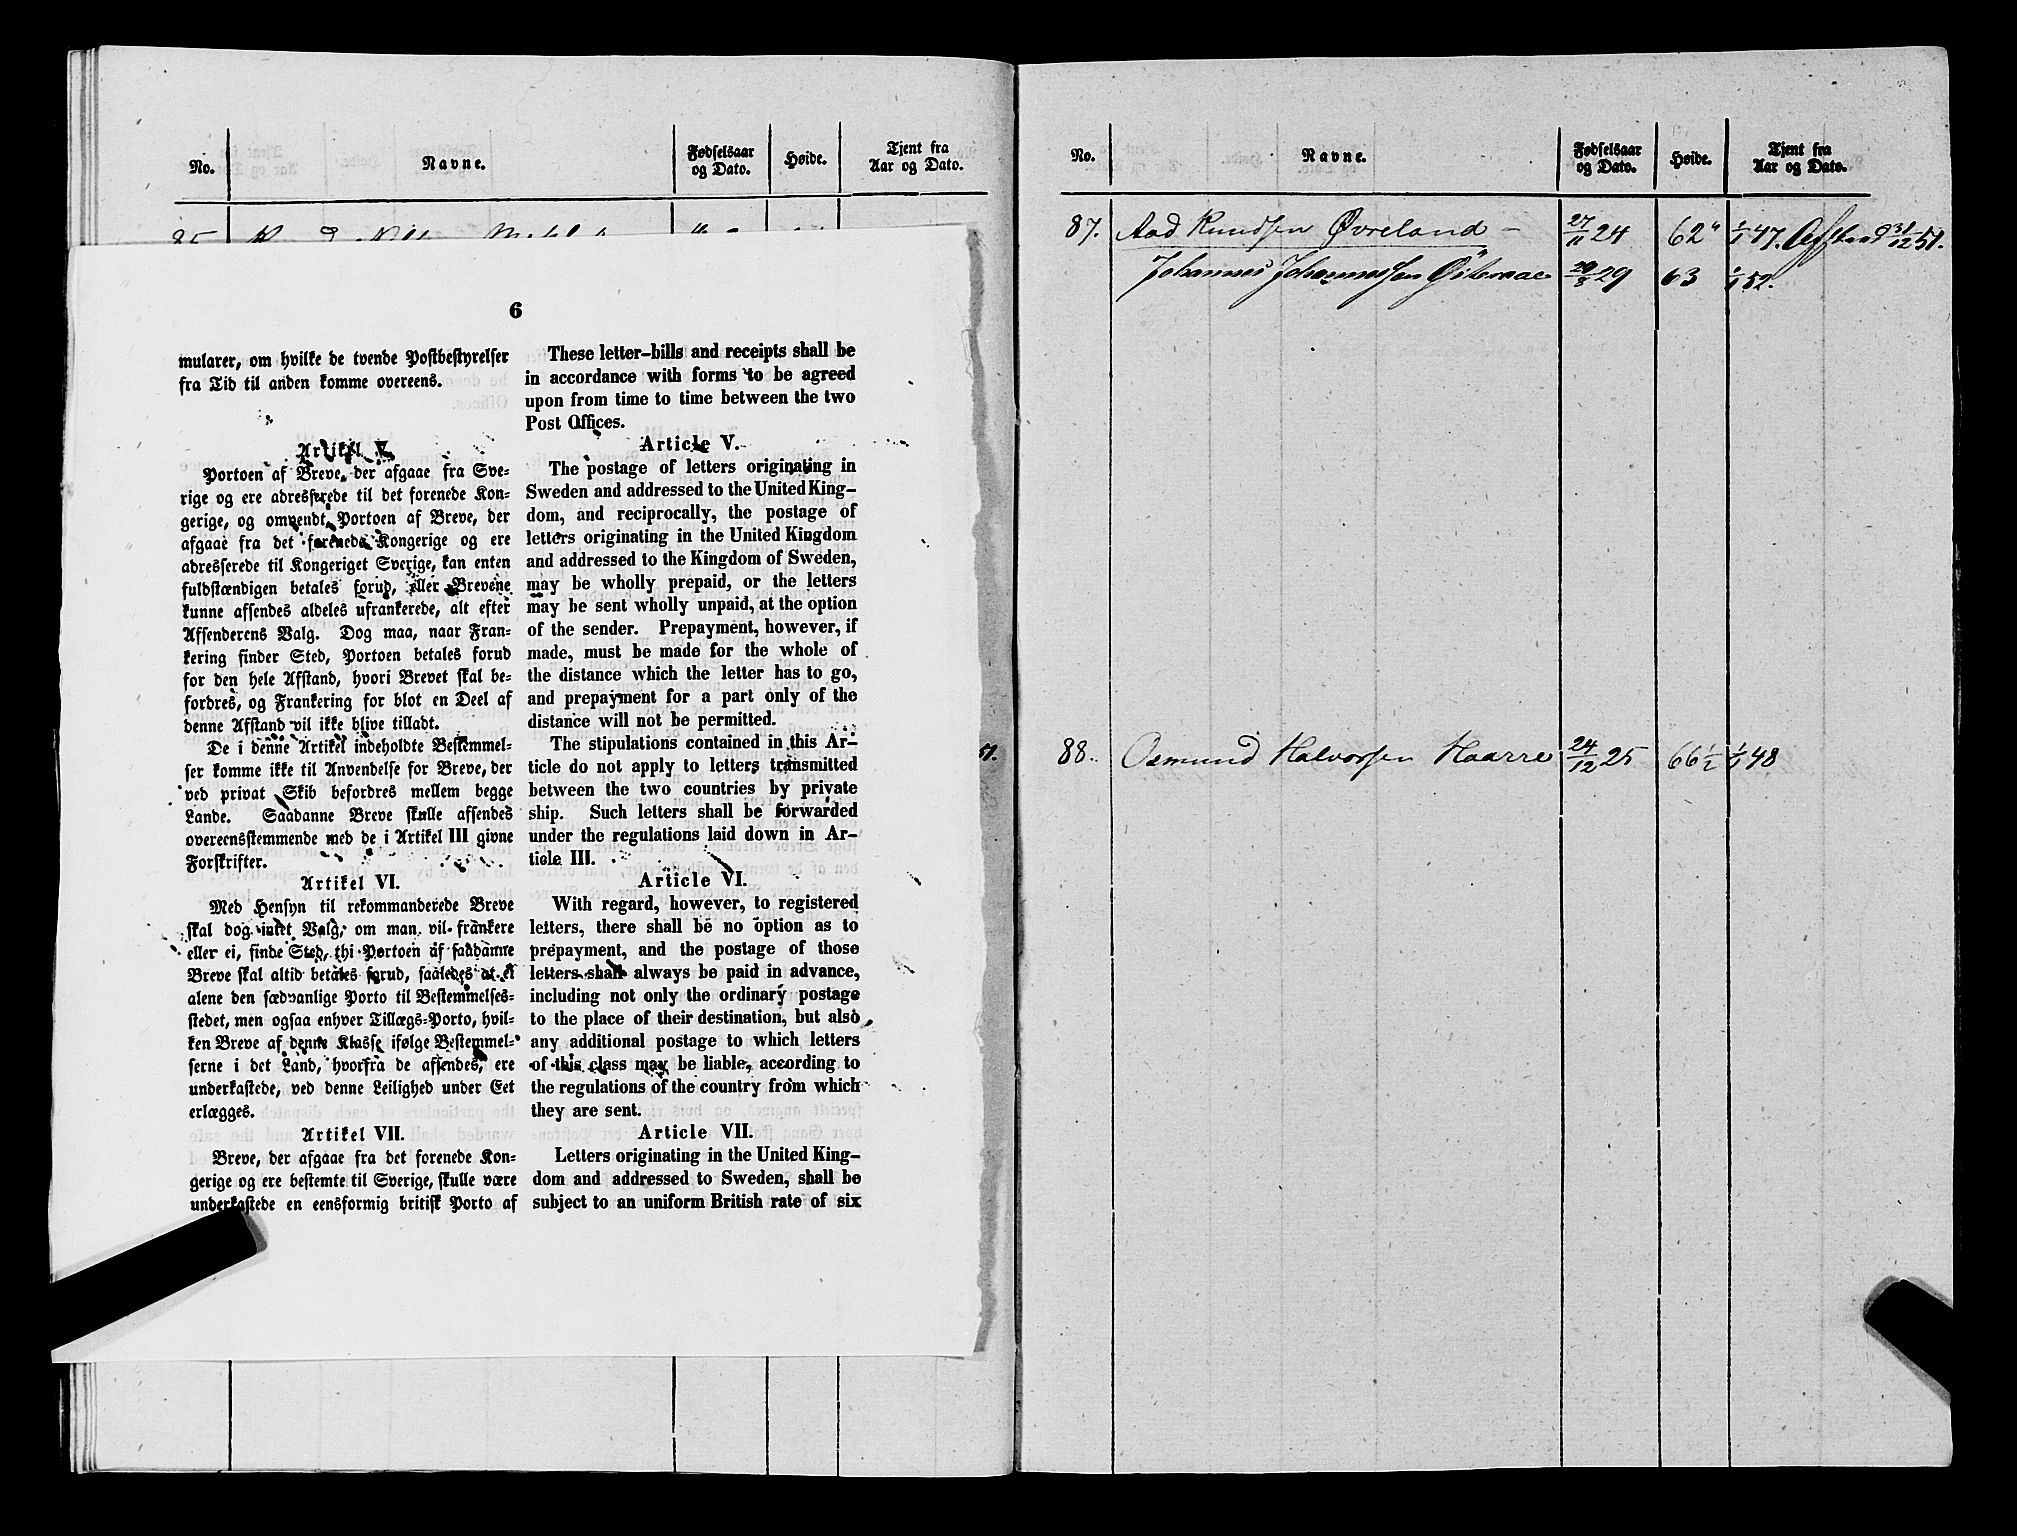 No.
Navne.
Fødselsaar
og Dato.
Høide.
Tjent fra
Aar og Dato.
85
6
mularer, om hvilke de tvende Postbestyrelser
fra Tid til anden komme overeens.
Artikel V.
Portoen af Breve, der afgaae fra Sve-
rige og ere adresserede til det forenede Kon-
gerige, og omvendt, Portoen af Breve, der
afgaae fra det forenede Kongerige og ere
adresserede til Kongeriget Sverige, kan enten
fuldstændigen betales forud, eller Brevene
kunne afsendes aldeles ufrankerede, alt efter
Afsenderens Valg. Dog maa, naar Fran-
kering finder Sted, Portoen betales forud
for den hele Afstand, hvori Brevet skal be-
fordres, og Frankering for blot en Deel af
denne Afstand vil ikke blive tilladt.
De i denne Artikel indeholdte Bestemmel-
ser komme ikke til Anvendelse for Breve, der
ved privat Skib befordres mellem begge
Lande. Saadanne Breve skulle afsendes
overeensstemmende med de i Artikel III givne
Forskrifter.
Artikel VI.
Med Hensyn til rekommanderede Breve
skal dog intet Valg, om man vil frankere
eller ei, finde Sted, thi Portoen af saadanne
Breve skal altid betales forud, saaledes at ei
alene den sædvanlige Porto til Bestemmelses-
stedet, men ogsaa enhver Tillægs-Porto, hvil-
ken Breve af denne Klasse ifølge Bestemmel-
serne i det Land, hvorfra de afsendes, ere
underkastede, ved denne Leilighed under Eet
erlægges.
Artikel VII.
Breve, der afgaae fra det forenede Kon-
gerige og ere bestemte til Sverige, skulle være
underkastede en eensformig britisk Porto af
These letter-bills and receipts shall be
in accordance with forms to be agreed
upon from time to time between the two
Post Offices.
Article V.
The postage of letters originating in
Sweden and addressed to the United King-
dom, and reciprocally, the postage of
letters originating in the United Kingdom
and addressed to the Kingdom of Sweden,
may be wholly prepaid, or the letters
may be sent wholly unpaid, at the option
of the sender. Prepayment, however, if
made, must be made for the whole of
the distance which the letter has to go,
and prepayment for a part only of the
distance will not be permitted.
The stipulations contained in this Ar-
ticle do not apply to letters transmitted
between the two countries by private
ship. Such letters shall be forwarded
under the regulations laid down in Ar-
ticle III.
Article VI.
With regard, however, to registered
letters, there shall be no option as to
prepayment, and the postage of those
letters shall always be paid in advance,
including not only the ordinary postage
to the place of their destination, but also
any additional postage to which letters
of this class may be liable, according to
the regulations of the country from which
they are sent.
Article VII.
Letters originating in the United King-
dom and addressed to Sweden, shall be
subject to an uniform British rate of six
51.
No.
Navne.
Fødselsaar
og Dato.
Høide.
Tjent fra
Aar og Dato.
87. Aad Knudsen Øvreland - 27/11 24 62" 1/1 47. Afskeed 31/12 51.
Johannes Johannessen 29/8 29 63 1/1 52.
88. Osmund Halvorsen Haarre 24/12 25 66 1/2 1/1 48